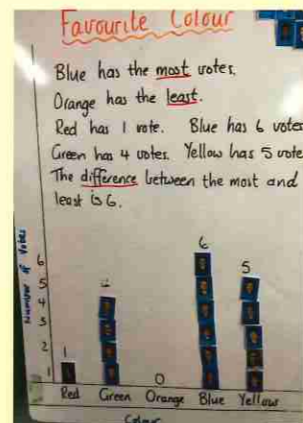 Favourite Colour
Blue has the most votes.
Orange has the least.
Red has 1 vote. Blue has 6 votes
Green has 4 votes. Yellow has 5 vote
The difference between the most and
least is 6.
Number of Votes
6
5
4
3
2
1
1
4
0
6
5
Red Green Orange Blue Yellow
Colour